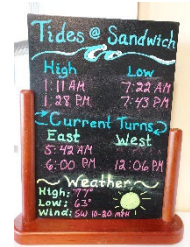 Tides @ Sandwich
High Low
1:11 AM 7:22 AM
1:28 PM 7:43 PM
Current Turns
East West
5:42 AM
6:00 PM 12:06 PM
Weather
High: 77°
Low: 63°
Wind: SW 10-20 mph